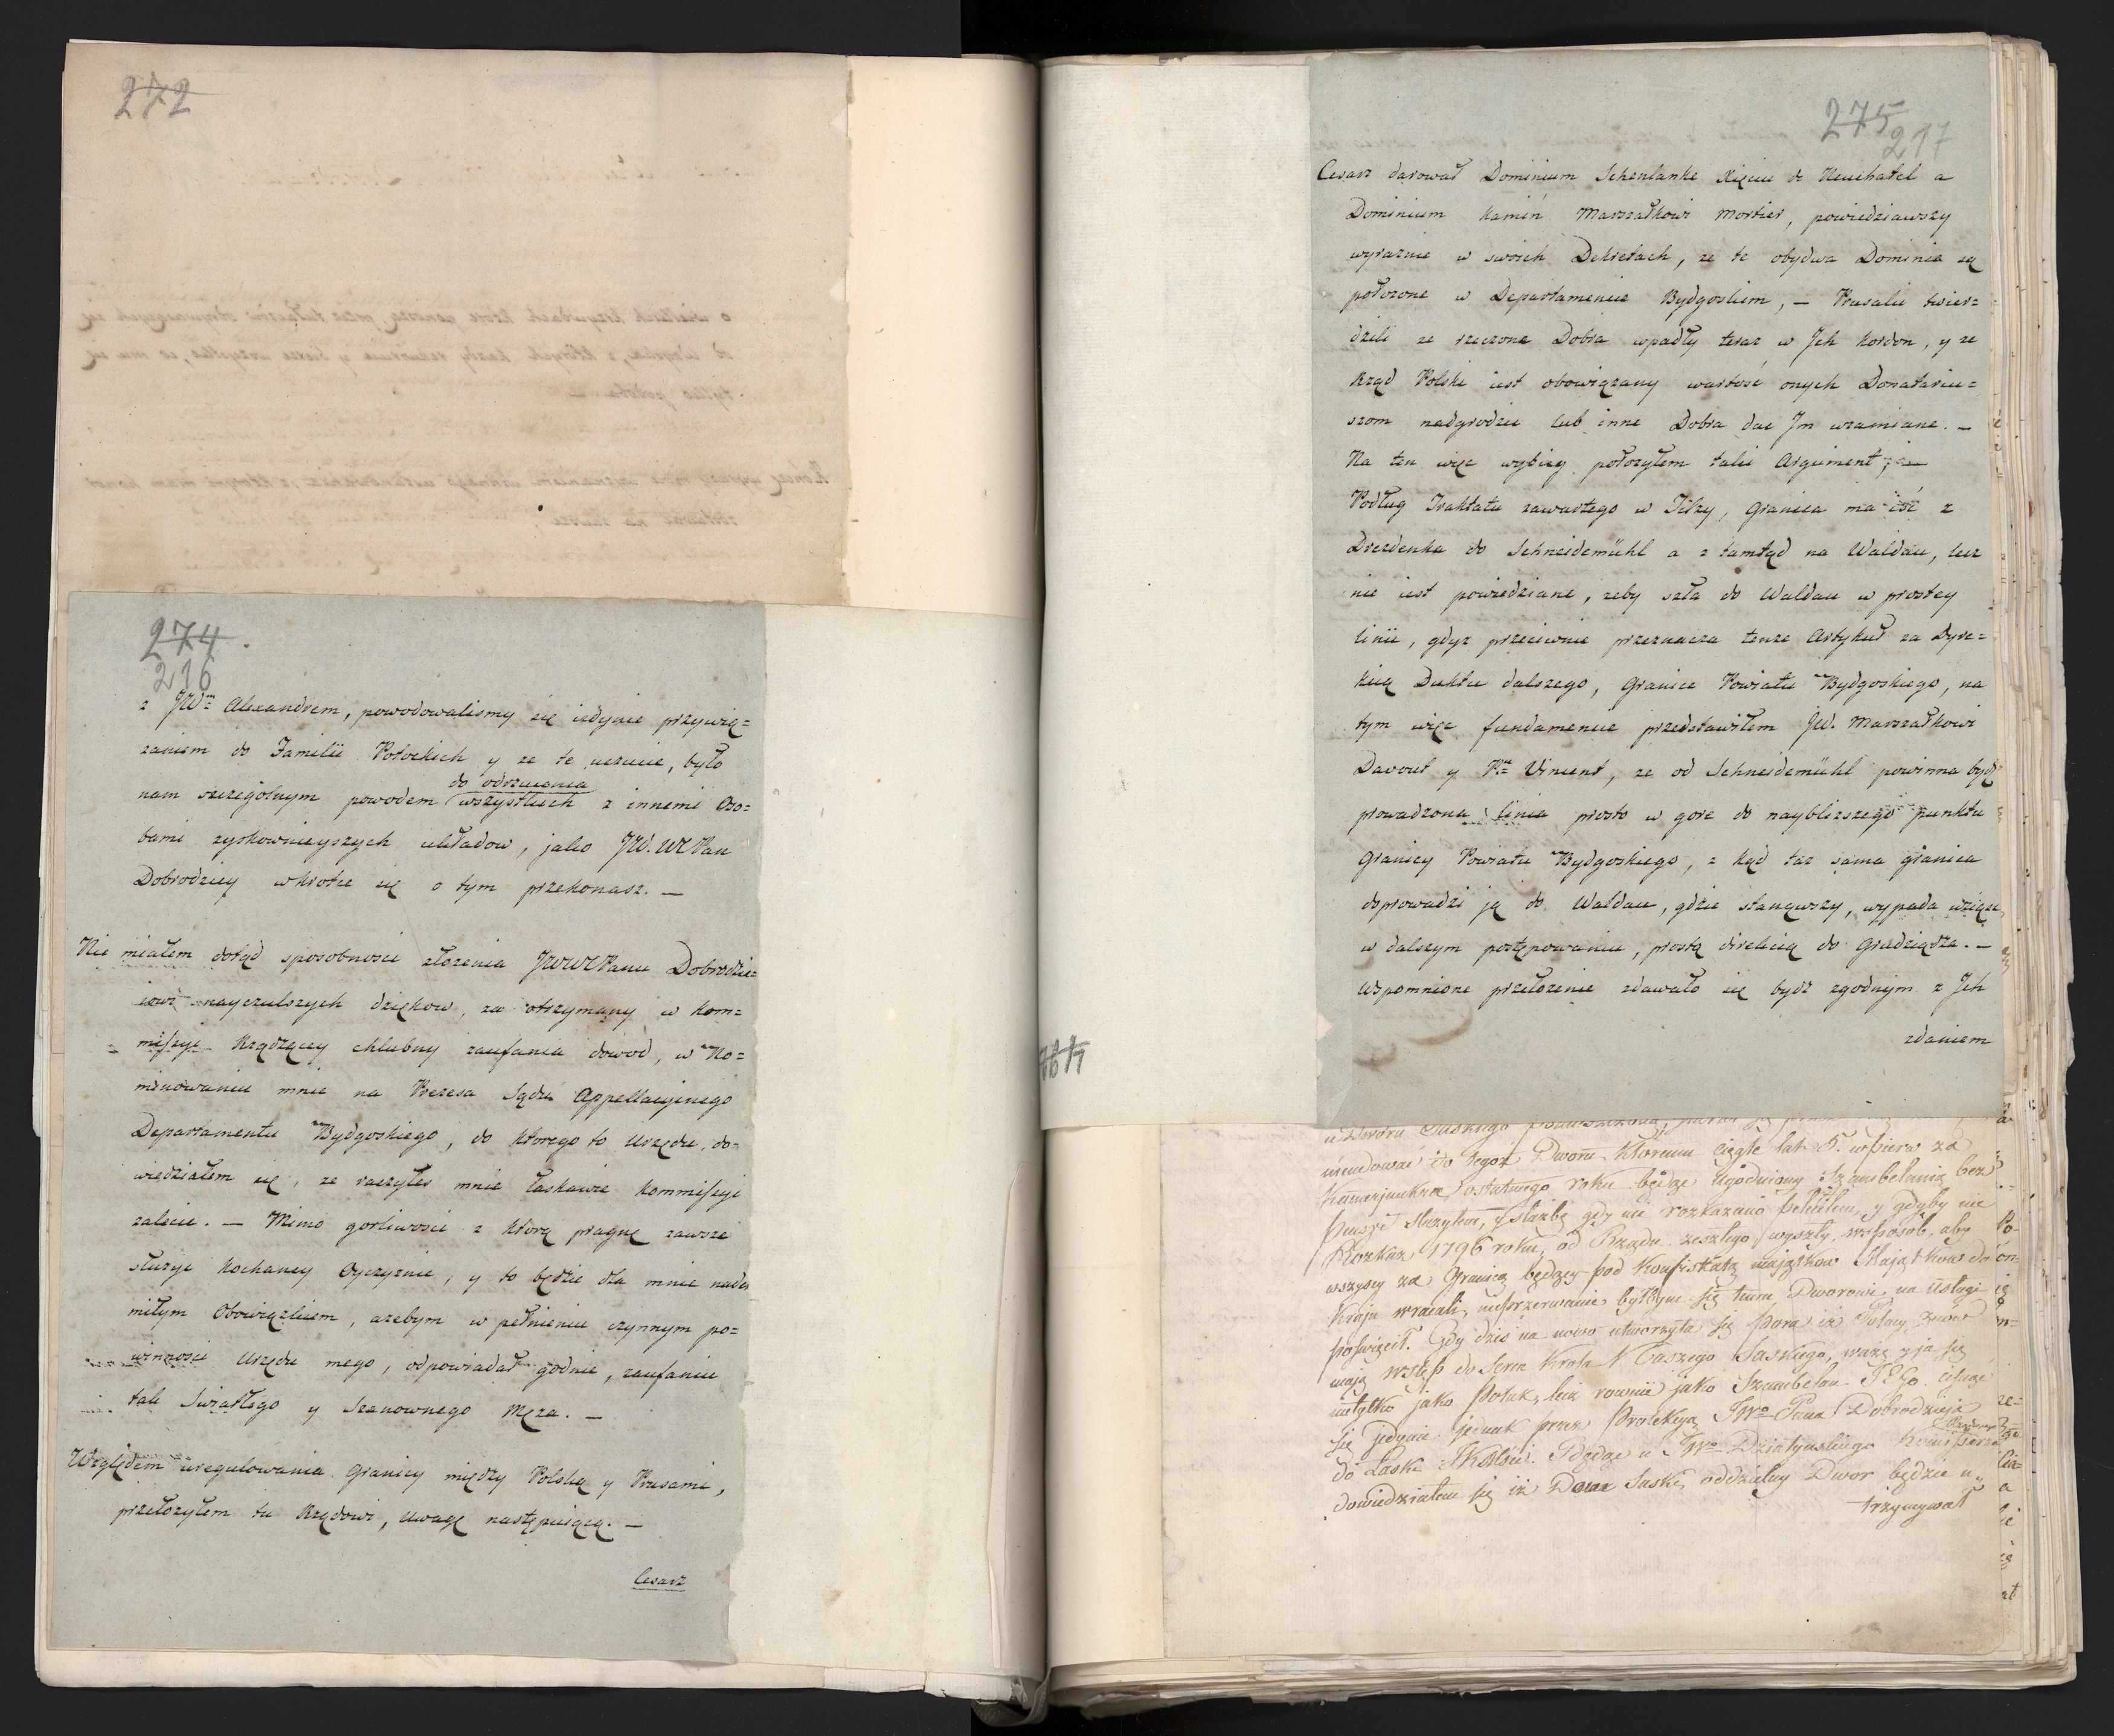 272
274.
216
z JWm Alexandrem, powodowalismy się iedynie przywią=
zaniem do Familii Potockich y ze te uczucie, było
do odrzucenia
nam szczegolnym powodem wszystkich z innemi Oso=
bami zyskownieyszych układow, jako JW. WC Pan
Dobrodziey wkrotce się o tym przekonasz. —
Nie miałem dotąd sposobnosci złozenia JWWC Panu Dobrodzie=
iowi nayczulszych dziękow, za otrzymany w Kom=
missyi Rządzącey chlubny zaufania dowod, w No=
minowaniu mnie na Prezesa Sądu Appellacyinego
Departamentu Bydgoskiego, do ktorego to Urzędu, do=
wiedziałem się, ze raczyłes mnie łaskawie Kommissyi
zalecic. — Mimo gorliwosci z ktorą pragnę zawsze
służyc Kochaney Oyczyznie, y to będzie dla mnie nader
miłym Obowiązkiem, azebym w pełnieniu czynnym po=
winnosci Urzędu mego, odpowiadał godnie, zaufaniu
tak Swiatłego y Szanownego Męza. —
Względem uregulowania Granicy między Polską y Prusami,
przełozyłem tu Rządowi, uwagę następuiącą. —
Cesarz
275
217
Cesarz darował Dominium Schenlanke Xięciu de Neuchatel a
Dominium Kamiń Marszałkowi Mortier, powiedziawszy
wyraznie w swoich Dekretach, ze te obydwa Dominia są
połozone w Departamencie Bydgoskiem, — Prusacy twier=
dzili ze rzeczone Dobra wpadły teraz w Jch Kordon, y ze
Rząd Polski iest obowiązany wartość onych Donatariu=
szom nadgrodzic lub inne Dobra dac Jm wzamiane. —
Na ten więc wybieg połozyłem takie Argument; —
Podług Traktatu zawartego w Tilzy, Granica ma iść z
Drezdenka do Schneidemühl a z tamtąd na Waldau, lecz
nie iest powiedziane, zeby szła do Waldau w prostey
linii, gdyz przeciwnie przeznacza tenze Artykuł za Dyre=
kcią Duktu dalszego, Granice Powiatu Bydgoskiego, na
tym więc fundamencie przedstawiłem JW. Marszałkowi
Davout y Pnu Vincent, ze od Schneidemühl powinna bydź
prowadzona linia prosto w gorę do nayblizszego punktu
Granicy Powiatu Bydgoskiego, z kąd taz sama granica
doprowadzi ją do Waldau, gdzie stanąwszy, wypada wziąść
w dalszym postępowaniu, prostą direkcią do Grudziądza. —
Wspomnione przełozenie zdawało się bydz zgodnym z Jch
zdaniem
u Dworu Saskiego
do tegoż Dworu któremu ciągle lat 5. wpierw za
Kamerjunkra ostatniego roku będąc Szambelanią bez
Pensyi Służbę gdy nie rozkazano pełniłem, y gdyby nie
Rozkaz 1796 roku, od Rządu zeszłego wyszły, wsposób, aby
wszyscy za Granicą będący pod Konfiskatą majątków do
Kraju wracali, nieprzerwanie byłbym się temu Dworowi na usługi
poswięcił. Gdy dzis na nowo utworzyła się Pora iż Polacy znów
mają wstęp do Serca Króla Naszego Saskiego, ważę y ja się
nietylko jako Polak, lecz rownie jako Szambelan JEgo
się jedynie jednak przez Protekcyą JWo Pana Dobrodzieja
do Łaski JKMści. Będąc u JWo Działynskiego
dowiedziałem się iż Dwor Saski oddzielny Dwor będzie u,,
trzymywał